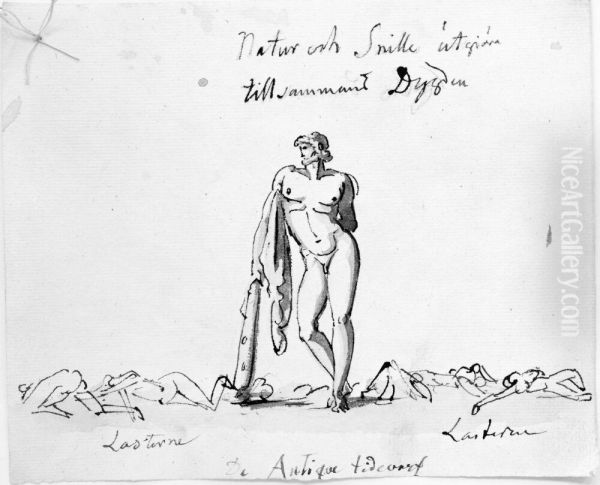 Natur och Snille utgiöra
tillsammans Dygden
Lasterne
Lasterne
De Antique tidevarf
NiceArtGallery.com